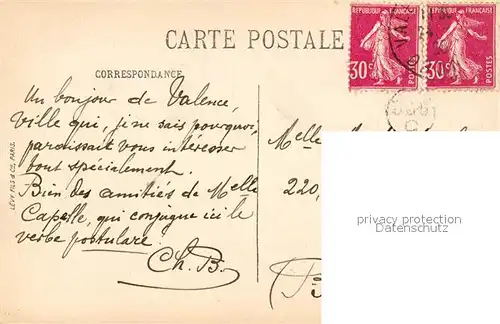 RÉPUBLIQUE FRANÇAISE RÉPUBLIQUE FRANÇAISE
30c POSTES 30c POSTES
CARTE POSTALE
CORRESPONDANCE
Un bonjour de Valence,
ville qui, je ne sais pourquoi,
paraissait vous intéresser
tout spécialement.
Bien des amitiés de Melle
Capelle, qui conjugue ici le
verbe postulare.
Ch. B.
Melle
220,
LÉVY FILS & Cie, PARIS
privacy protection
Datenschutz